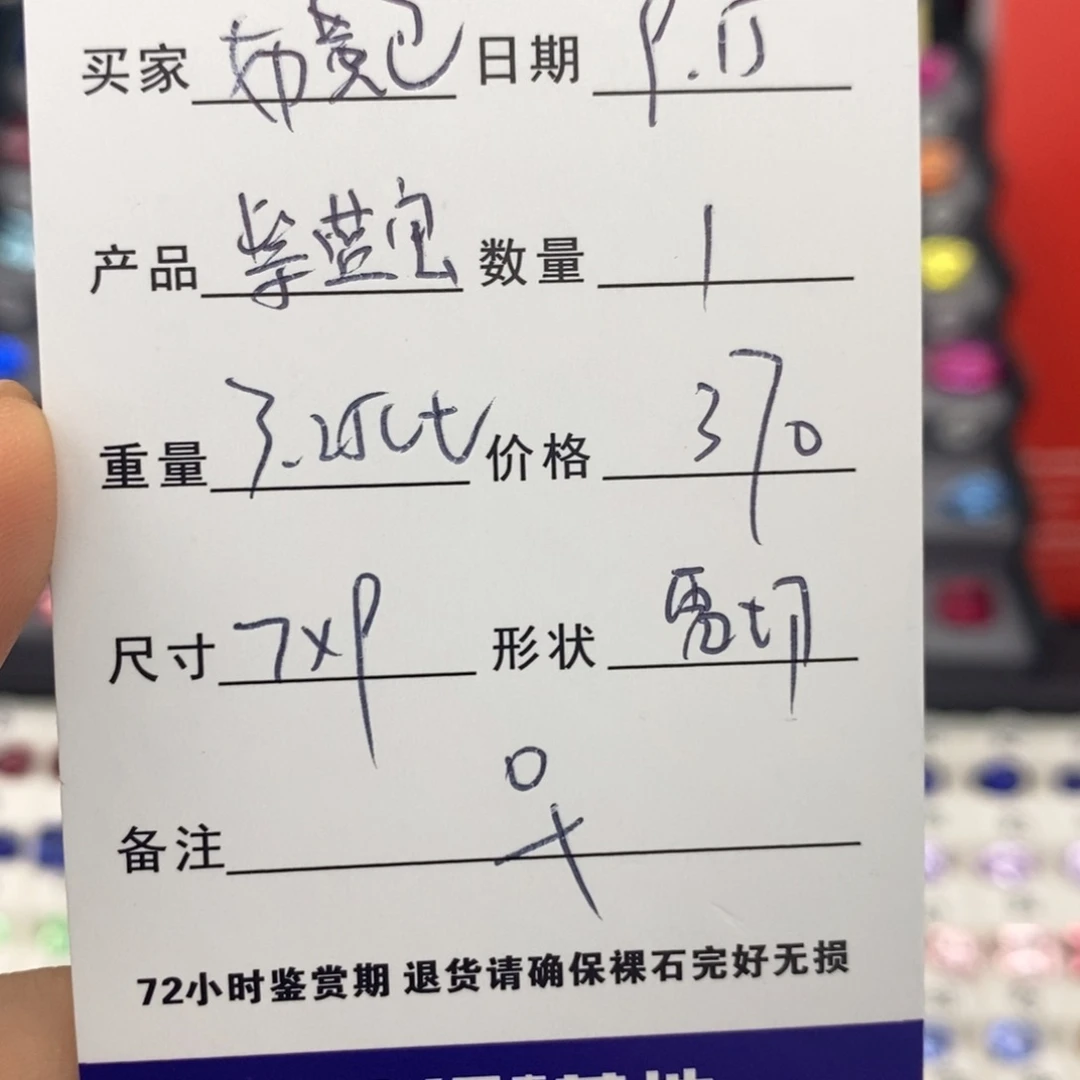 买家 布党已 日期 9.15
产品 紫蓝宝 数量 1
重量 3.25ct 价格 370
尺寸 7x9 形状 雷切
备注
72小时鉴赏期 退货请确保裸石完好无损